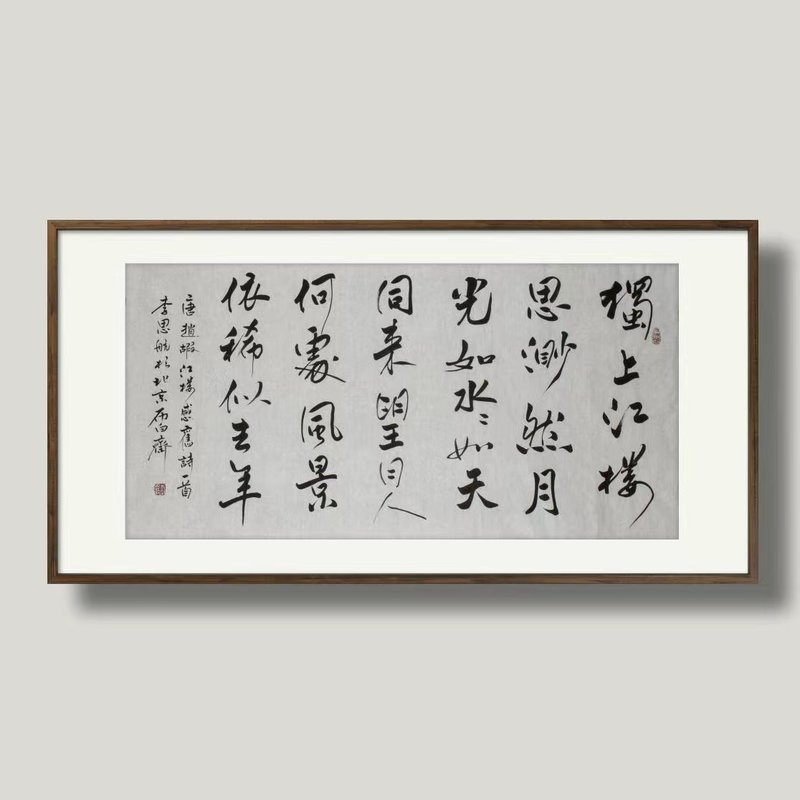 獨上江楼
思渺然月
光如水〻如天
同来望月人
何處風景
依稀似去年
唐趙嘏江楼感舊詩一首
李思航於北京白齋